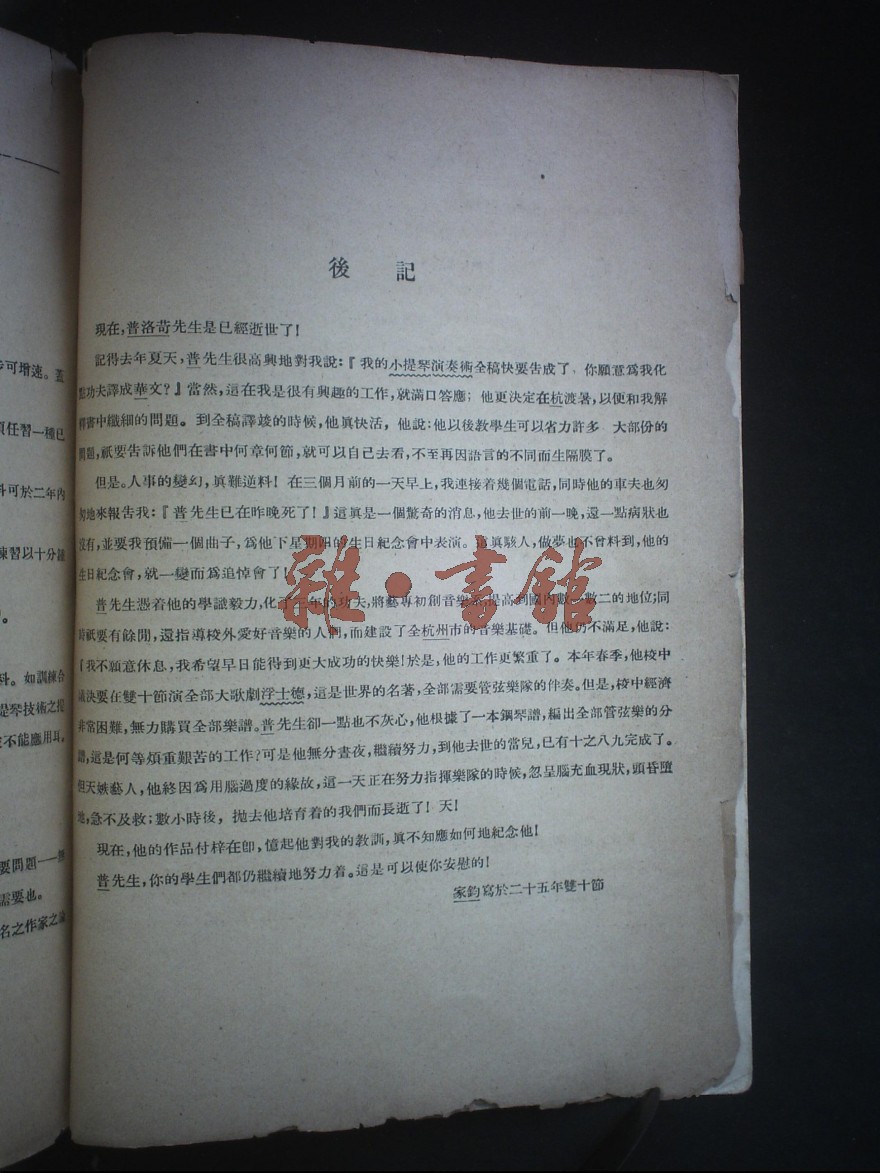 步可增速。蓋
責任習一種已
料可於二年內
練習以十分鐘
科。如訓練合
是琴技術之提
不能應用耳,
要問題——無
需要也。
名之作家之論
後記
現在,普洛苛先生是已經逝世了!
記得去年夏天,普先生很高興地對我說:『我的小提琴演奏術全稿快要告成了,你願意爲我化
點功夫譯成華文?』當然,這在我是很有興趣的工作,就滿口答應;他更決定在杭渡暑,以便和我解
釋書中纖細的問題。到全稿譯竣的時候,他眞快活,他說:他以後教學生可以省力許多 大部份的
問題,祇要告訴他們在書中何章何節,就可以自己去看,不至再因語言的不同而生隔膜了。
但是。人事的變幻,眞難逆料!在三個月前的一天早上,我連接着幾個電話,同時他的車夫也匆
匆地來報告我:『普先生已在昨晚死了!』這眞是一個驚奇的消息,他去世的前一晚,還一點病狀也
沒有,並要我預備一個曲子,爲他下星期四的生日紀念會中表演。這眞駭人,做夢也不曾料到,他的
生日紀念會,就一變而爲追悼會了!
普先生憑着他的學識毅力,化了三年的功夫,將藝專初創音樂系,提高到國內數一數二的地位;同
時祇要有餘閒,還指導校外愛好音樂的人們,而建設了全杭州市的音樂基礎。但他仍不滿足,他說:
『我不願意休息,我希望早日能得到更大成功的快樂!於是,他的工作更繁重了。本年春季,他校中
議決要在雙十節演全部大歌劇浮士德,這是世界的名著,全部需要管弦樂隊的伴奏。但是,校中經濟
非常困難,無力購買全部樂譜。普先生卻一點也不灰心,他根據了一本鋼琴譜,編出全部管弦樂的分
譜,這是何等煩重艱苦的工作?可是他無分晝夜,繼續努力,到他去世的當兒,已有十之八九完成了。
但天嫉藝人,他終因爲用腦過度的緣故,這一天正在努力指揮樂隊的時候,忽呈腦充血現狀,頭昏墮
地,急不及救;數小時後,拋去他培育着的我們而長逝了!天!
現在,他的作品付梓在卽,憶起他對我的教訓,眞不知應如何地紀念他!
普先生,你的學生們都仍繼續地努力着。這是可以使你安慰的!
家鈞寫於二十五年雙十節
雜·書館